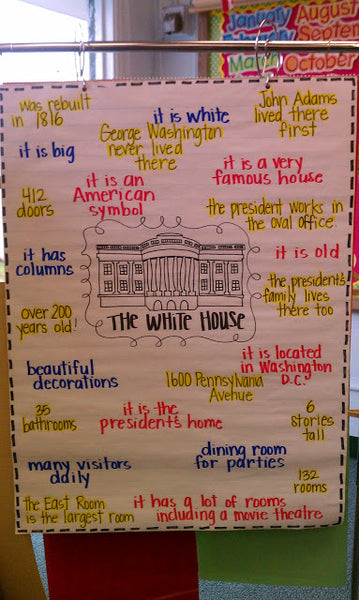 January
August
February
Septem
March
October
was rebuilt
in 1816
it is white
John Adams
lived there
first
George Washington
never lived
there
it is big
it is a very
famous house
it is an
American
symbol
412
doors
the president works in
the oval office.
it has
columns
it is old
the presidents
family lives
there too
over 200
years old!
THE WHITE HOUSE
it is located
in Washington
D.C.
beautiful
decorations
1600 Pennsylvania
Avenue
35
bathrooms
it is the
president's home
6
stories
tall
many visitors
daily
dining room
for parties
132
rooms
the East Room
is the largest room
it has a lot of rooms
including a movie theatre